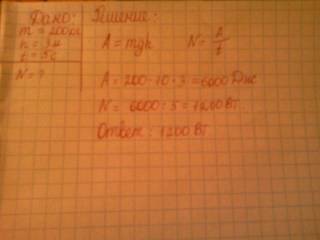 Дано:
m = 200 кг
h = 3 м
t = 5 с
N = ?
Решение:
A = mgh N = A/t
A = 200 · 10 · 3 = 6000 Дж
N = 6000 : 5 = 1200 Вт
Ответ: 1200 Вт